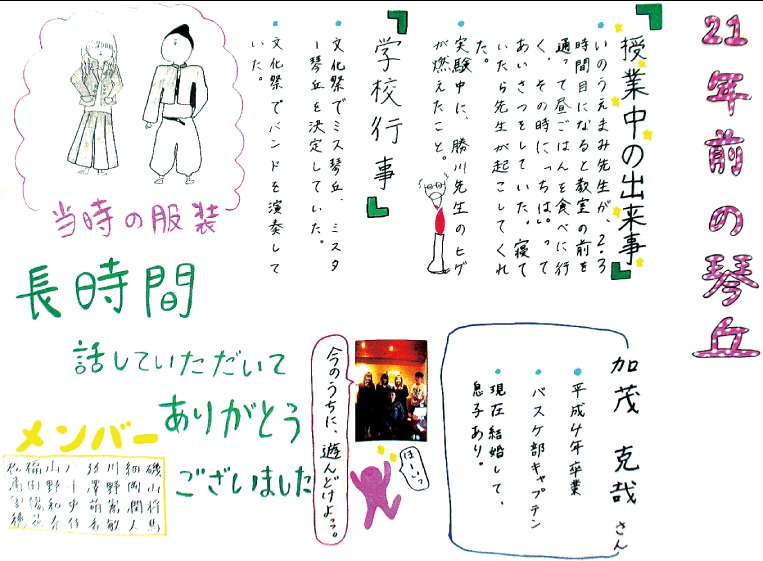 21年前の琴丘
授業中の出来事
いのうえまみ先生が、2・3
時間目になると教室の前を
通って昼ごはんを食べに行
く、その時に、っちは。って
あいさつをしていた。寝て
いたら先生が起こしてくれ
た。
実験中に、勝川先生のヒゲ
が燃えたこと。
学校行事
文化祭でミス琴丘、ミスタ
ー琴丘を決定していた。
文化祭でバンドを演奏して
いた。
当時の服装
加茂 克哉 さん
平成4年卒業
バスケ部キャプテン
現在結婚して、
息子あり。
今のうちに、遊んどけよっ。
はーいっ
長時間
話していただいて
ありがとう
ございました
メンバー
磯山将馬
細岡潤人